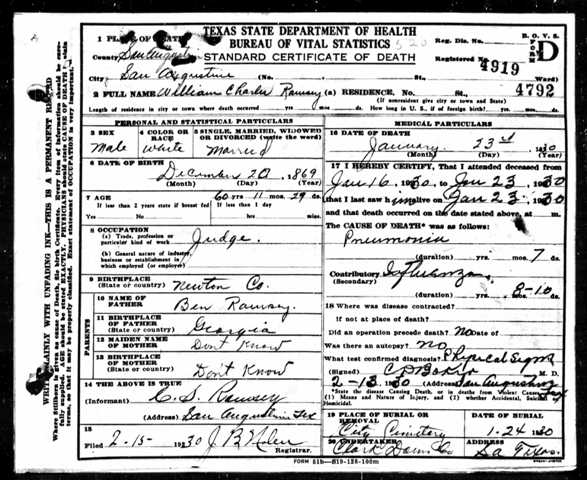 TEXAS STATE DEPARTMENT OF HEALTH
BUREAU OF VITAL STATISTICS
STANDARD CERTIFICATE OF DEATH
B. O. V. S.
FORM D
Reg. Dis. No.
Registered No. 4919
4792
WRITE PLAINLY WITH UNFADING INK—THIS IS A PERMANENT RECORD
1 PLACE OF DEATH
County San Augustine
City San Augustine (No. St., Ward)
2 FULL NAME William Charles Ramsey (a) RESIDENCE. No. St.,
(If nonresident give city or town and State)
Length of residence in city or town where death occurred yrs. mos. days. How long in U. S., if of foreign birth? yrs. mos. days
PERSONAL AND STATISTICAL PARTICULARS
3 SEX
Male
4 COLOR OR RACE
White
5 SINGLE, MARRIED, WIDOWED OR DIVORCED (write the word)
Married
6 DATE OF BIRTH
December 20 1869
(Month) (Day) (Year)
7 AGE 60 yrs. 11 mos. 29 ds.
If less than 2 years state if breast fed If less than 1 day
Yes No hours minutes
8 OCCUPATION
(a) Trade, profession or particular kind of work Judge.
(b) General nature of industry, business or establishment in which employed (or employer)
9 BIRTHPLACE
(State or country) Newton Co.
PARENTS
10 NAME OF FATHER Ben Ramsey.
11 BIRTHPLACE OF FATHER
(State or country) Georgia
12 MAIDEN NAME OF MOTHER Don't Know
13 BIRTHPLACE OF MOTHER
(State or country) Don't Know
14 THE ABOVE IS TRUE
(Informant) C. S. Ramsey
(Address) San Augustine Tex
15
Filed 2-15-1930 Registrar.
MEDICAL PARTICULARS
16 DATE OF DEATH
January 23rd 1930
(Month) (Day) (Year)
17 I HEREBY CERTIFY, That I attended deceased from
Jan 16, 1930, to Jan 23, 1930
that I last saw him alive on Jan 23, 1930
and that death occurred on the date stated above, at m.
The CAUSE OF DEATH* was as follows:
Pneumonia
(duration) yrs. mos. 7 ds.
Contributory Influenza
(Secondary)
(duration) yrs. mos. 8-10 ds.
18 Where was disease contracted?
If not at place of death?
Did an operation precede death? No Date of
Was there an autopsy? no
What test confirmed diagnosis? Physical Signs
(Signed) M. D.
2-13 1930 (Address) San Augustine Tex
*State the disease Causing Death, or in deaths from Violent Causes, state (1) Means and Nature of Injury, and (2) whether Accidental, Suicidal, or Homicidal.
19 PLACE OF BURIAL OR REMOVAL
City Cemetery
DATE OF BURIAL
1-24 1930
20 UNDERTAKER
ADDRESS
Sa Texas.